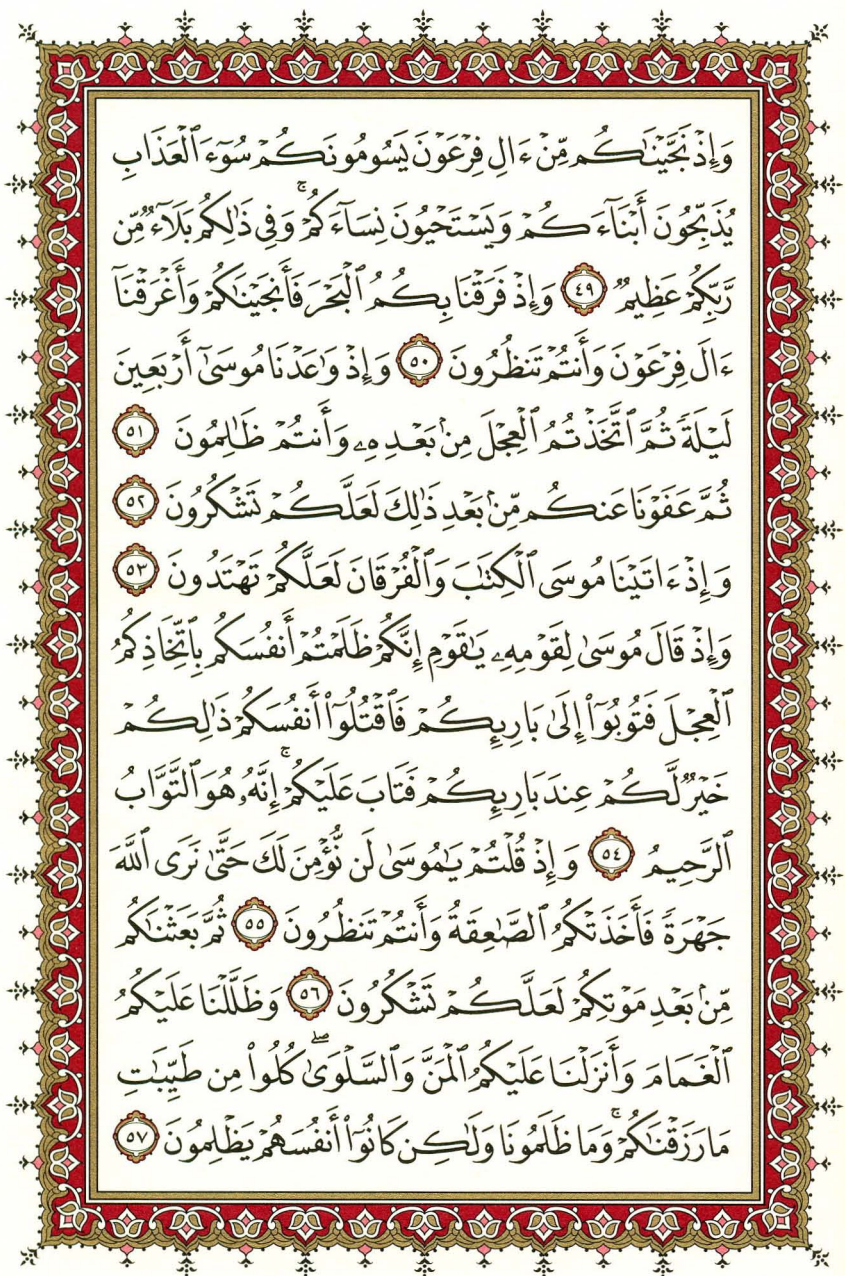 وَإِذْ نَجَّيْنَٰكُم مِّنْ ءَالِ فِرْعَوْنَ يَسُومُونَكُمْ سُوٓءَ ٱلْعَذَابِ
يُذَبِّحُونَ أَبْنَآءَكُمْ وَيَسْتَحْيُونَ نِسَآءَكُمْ ۚ وَفِى ذَٰلِكُم بَلَآءٌ مِّن
رَّبِّكُمْ عَظِيمٌ ٤٩ وَإِذْ فَرَقْنَا بِكُمُ ٱلْبَحْرَ فَأَنجَيْنَٰكُمْ وَأَغْرَقْنَآ
ءَالَ فِرْعَوْنَ وَأَنتُمْ تَنظُرُونَ ٥٠ وَإِذْ وَٰعَدْنَا مُوسَىٰٓ أَرْبَعِينَ
لَيْلَةً ثُمَّ ٱتَّخَذْتُمُ ٱلْعِجْلَ مِنۢ بَعْدِهِۦ وَأَنتُمْ ظَٰلِمُونَ ٥١
ثُمَّ عَفَوْنَا عَنكُم مِّنۢ بَعْدِ ذَٰلِكَ لَعَلَّكُمْ تَشْكُرُونَ ٥٢
وَإِذْ ءَاتَيْنَا مُوسَى ٱلْكِتَٰبَ وَٱلْفُرْقَانَ لَعَلَّكُمْ تَهْتَدُونَ ٥٣
وَإِذْ قَالَ مُوسَىٰ لِقَوْمِهِۦ يَٰقَوْمِ إِنَّكُمْ ظَلَمْتُمْ أَنفُسَكُم بِٱتِّخَاذِكُمُ
ٱلْعِجْلَ فَتُوبُوٓا۟ إِلَىٰ بَارِئِكُمْ فَٱقْتُلُوٓا۟ أَنفُسَكُمْ ذَٰلِكُمْ
خَيْرٌ لَّكُمْ عِندَ بَارِئِكُمْ فَتَابَ عَلَيْكُمْ ۚ إِنَّهُۥ هُوَ ٱلتَّوَّابُ
ٱلرَّحِيمُ ٥٤ وَإِذْ قُلْتُمْ يَٰمُوسَىٰ لَن نُّؤْمِنَ لَكَ حَتَّىٰ نَرَى ٱللَّهَ
جَهْرَةً فَأَخَذَتْكُمُ ٱلصَّٰعِقَةُ وَأَنتُمْ تَنظُرُونَ ٥٥ ثُمَّ بَعَثْنَٰكُم
مِّنۢ بَعْدِ مَوْتِكُمْ لَعَلَّكُمْ تَشْكُرُونَ ٥٦ وَظَلَّلْنَا عَلَيْكُمُ
ٱلْغَمَامَ وَأَنزَلْنَا عَلَيْكُمُ ٱلْمَنَّ وَٱلسَّلْوَىٰ ۖ كُلُوا۟ مِن طَيِّبَٰتِ
مَا رَزَقْنَٰكُمْ ۚ وَمَا ظَلَمُونَا وَلَٰكِن كَانُوٓا۟ أَنفُسَهُمْ يَظْلِمُونَ ٥٧